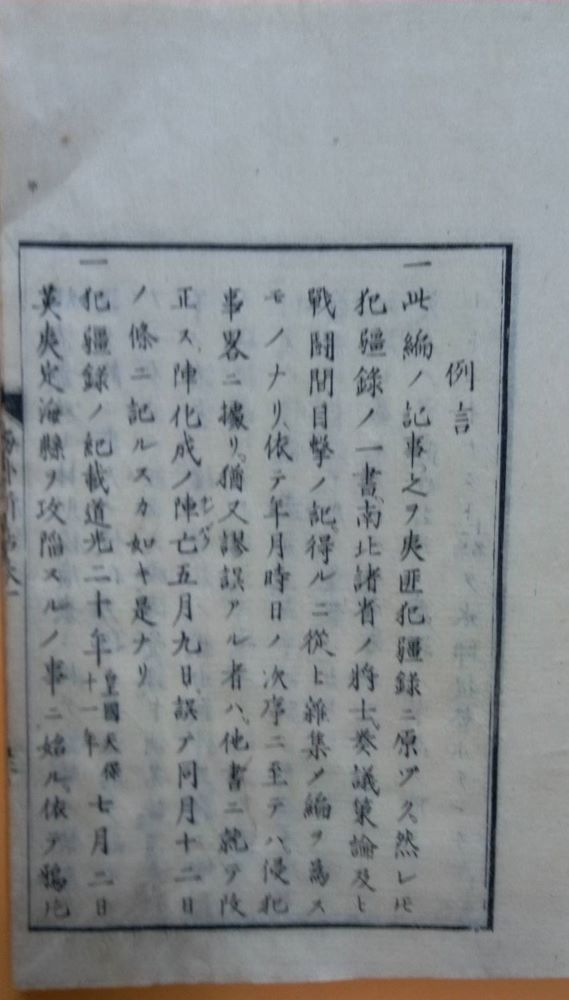 例言
一此編ノ記事之ヲ夷匪犯疆録ニ原ヅク然レ𪜈
犯疆録ノ一書南北諸省ノ將士奏議策論及ヒ
戰鬪間目撃ノ記得ルニ從ヒ雜集メ編ヲ為ス
モノナリ依テ年月時日ノ次序ニ至テハ侵犯
事畧ニ據リ猶又謬誤アル者ハ他書ニ就テ改
正ス陣化成ノ陣亡五月九日誤テ同月十二日
ノ條ニ記ルスカ如キ是ナリ
一犯疆録ノ紀載道光二十年皇國天保十一年七月二日
英夷定海縣ヲ攻陥スルノ事ニ始ル依テ鴉片